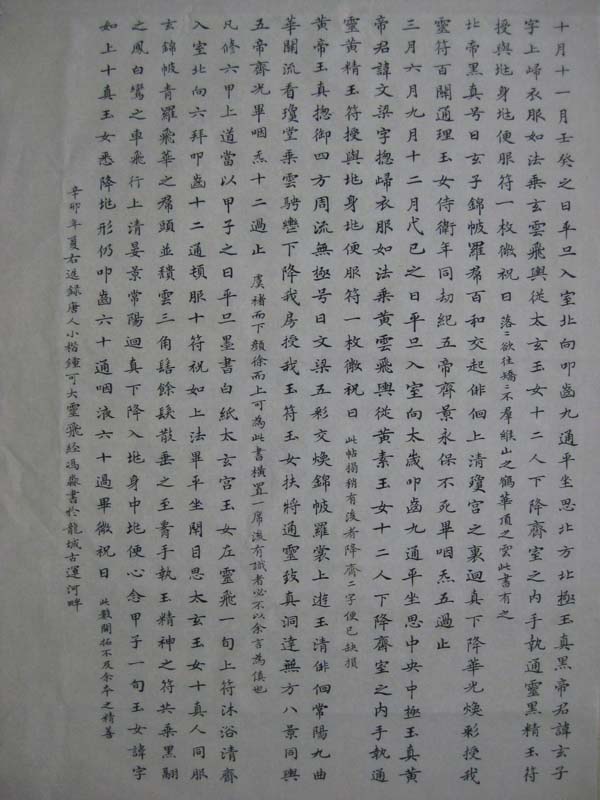 十月十一月壬癸之日平旦入室北向叩齒九通平坐思北方北極玉真黑帝君諱玄子
字上歸衣服如法乘玄雲飛輿從太玄玉女十二人下降齋室之內手執通靈黑精玉符
授與𡵨身𡵨便服符一枚微祝曰 落落欲往矯矯不羣緱山之鶴華頂之雲此書有之
北帝黑真号曰玄子錦帔羅帬百和交起俳佪上清瓊宮之裏迴真下降華光煥彩授我
靈符百關通理玉女侍衛年同劫紀五帝齊景永保不死畢咽炁五過止
三月六月九月十二月戊己之日平旦入室向太歲叩齒九通平坐思中央中極玉真黃
帝君諱文梁字揔歸衣服如法乘黃雲飛輿從黃素玉女十二人下降齋室之內手執通
靈黃精玉符授與𡵨身𡵨便服符一枚微祝曰 此帖搨稍有後者降齋二字便已缺損
黃帝玉真揔御四方周流無極号曰文梁五彩交煥錦帔羅裳上遊玉清俳佪常陽九曲
華關流看瓊堂乘雲騁轡下降我房授我玉符玉女扶將通靈致真洞達無方八景同輿
五帝齊光畢咽炁十二過止 虞褚而下顏徐而上可為此書橫置一席後有識者必不以余言為慎也
凡修六甲上道當以甲子之日平旦墨書白紙太玄宮玉女左靈飛一旬上符沐浴清齋
入室北向六拜叩齒十二通頓服十符祝如上法畢平坐閉目思太玄玉女十真人同服
玄錦帔青羅飛華之帬頭並頹雲三角髻餘髮散垂之至要手執玉精神之符共乘黑翮
之鳳白鸞之車飛行上清晏景常陽迴真下降入𡵨身中𡵨便心念甲子一旬玉女諱字
如上十真玉女悉降𡵨形仍叩齒六十通咽液六十過畢微祝曰 此數開拓不及余本之精善
辛卯年夏右迻錄唐人小楷鍾可大靈飛經馮淼書於龍城古運河畔